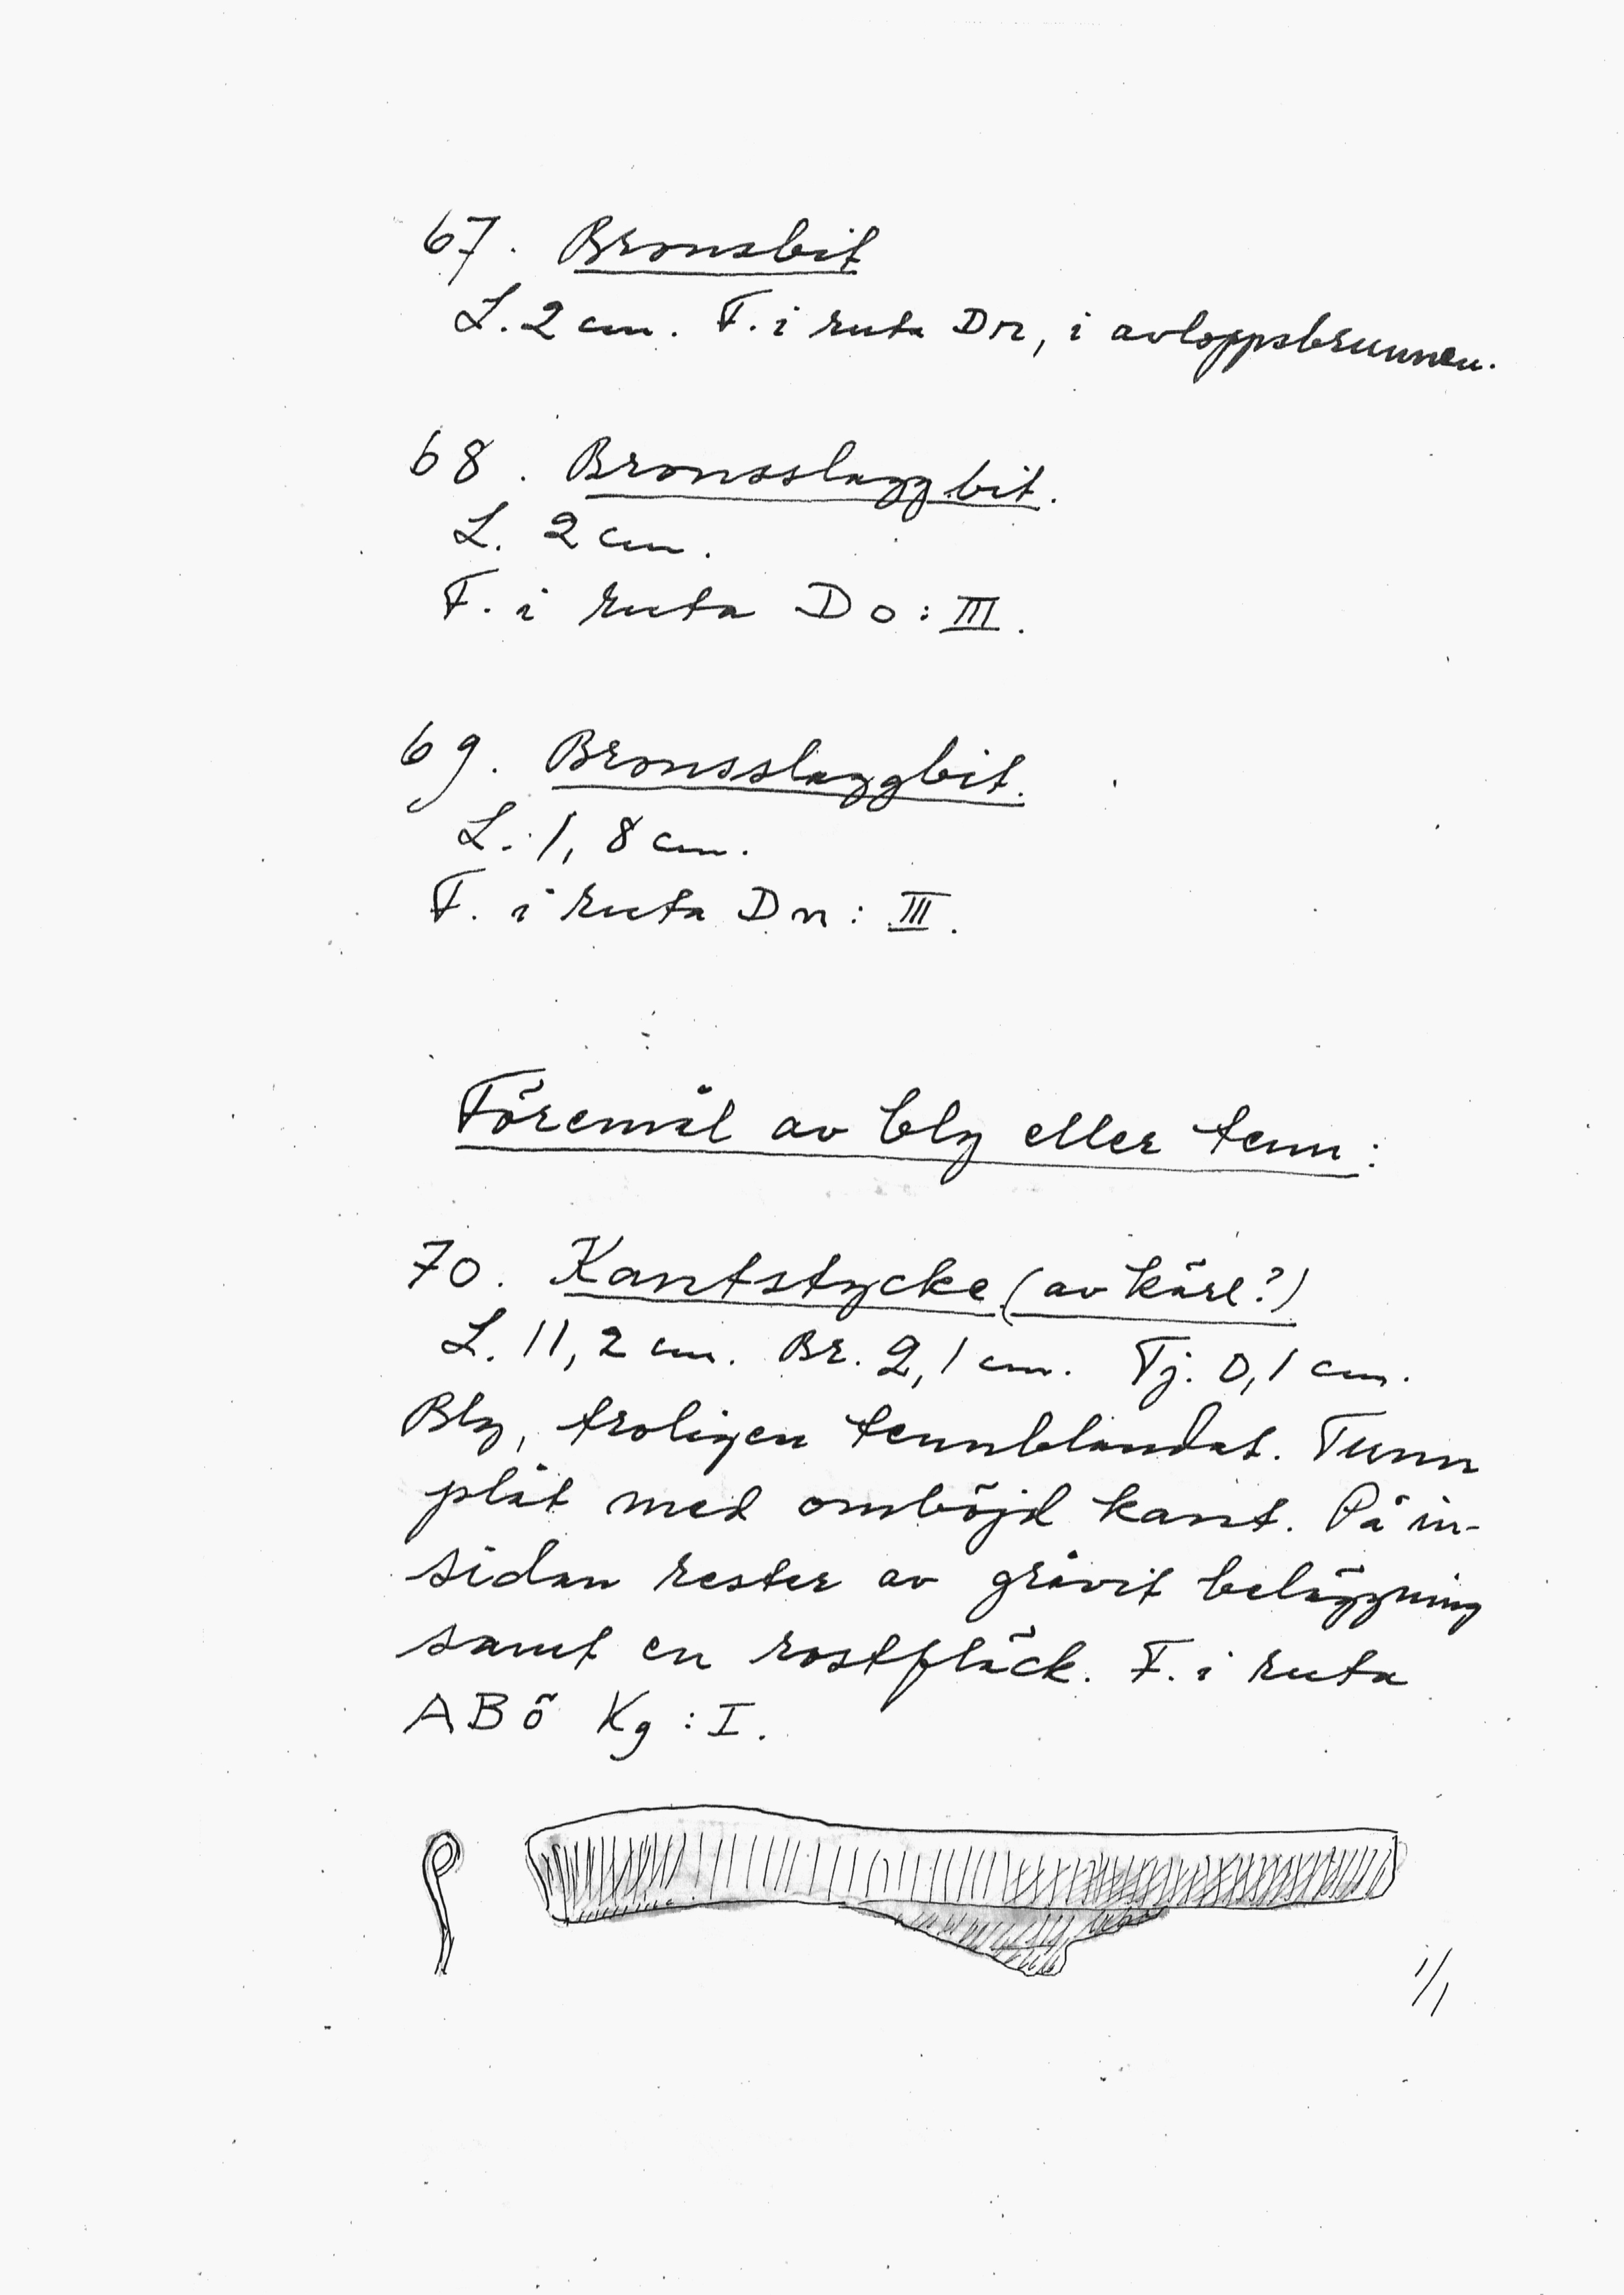 67. Bronsbit
L. 2 cm. F. i ruta Dn, i avloppsbrunnen.
68. Bronsslaggbit.
L. 2 cm.
F. i ruta Do: III.
69. Bronsslaggbit.
L. 1,8 cm.
F. i ruta Dn: III.
Föremål av bly eller tenn:
70. Kantstycke (av kärl?)
L. 11,2 cm. Br. 2,1 cm. Tj. 0,1 cm.
Bly, troligen tennblandat. Tunn
plåt med omböjd kant. På in-
sidan rester av gråvit beläggning
samt en rostfläck. F. i ruta
ABö Kg: I.
1/1